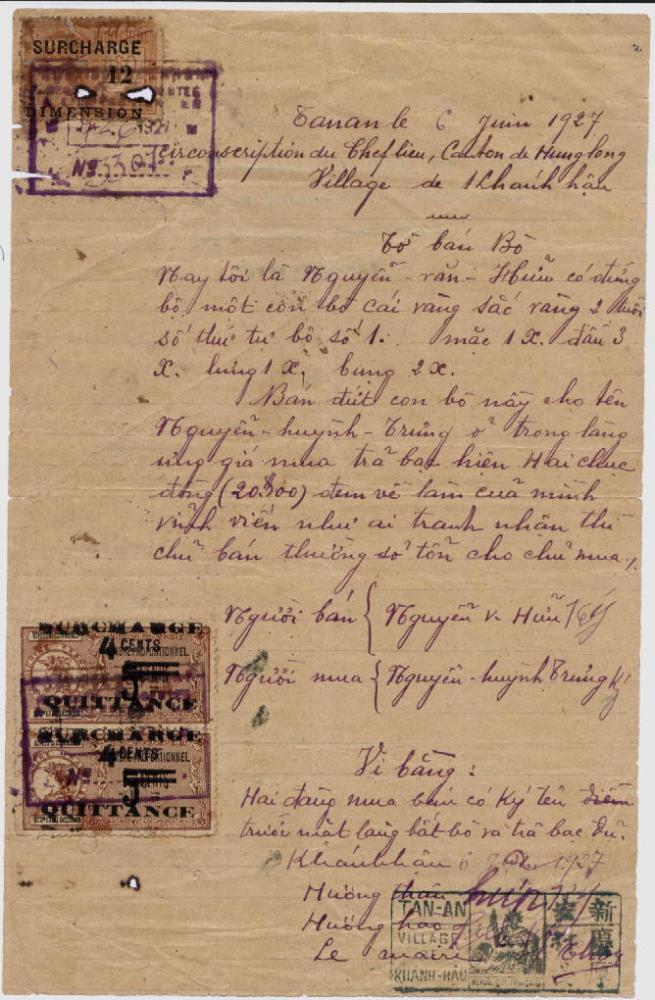 SURCHARGE
12
DIMENSION
Nº 330
Tanan le 6 Juin 1927
Circonscription du Chef lieu, Canton de Hunglong
Village de Khanh hậu
Tờ bán Bò
Nay tôi là Nguyễn-văn-Hữu có đứng
bộ một con bò cái vàng sắc vàng 2 tuổi
số thứ tự bộ số 1. mặc 1 X. đầu 3
X. lưng 1 X, bụng 2 X.
Bán đứt con bò nầy cho tên
Nguyễn-huỳnh-Trưng ở trong làng
ưng giá mua trả bạc hiện Hai chục
đồng (20$00) đem về làm của mình
vĩnh viễn như ai tranh nhận thì
chủ bán thường sở tổn cho chủ mua
SURCHARGE
4 CENTS
5
QUITTANCE
SURCHARGE
4 CENTS
5
QUITTANCE
Người bán { Nguyễn V. Hữu Ký
Người mua { Nguyễn-huỳnh Trưng Ký
Vi bằng:
Hai đàng mua bán có Ký tên điểm
trước mặt làng bắt bò và trả bạc đủ.
Khánhhậu 6 1927
Hương thân
Hương hào
Le maire
TAN-AN
VILLAGE
KHÁNH-HẬU
新
安
慶